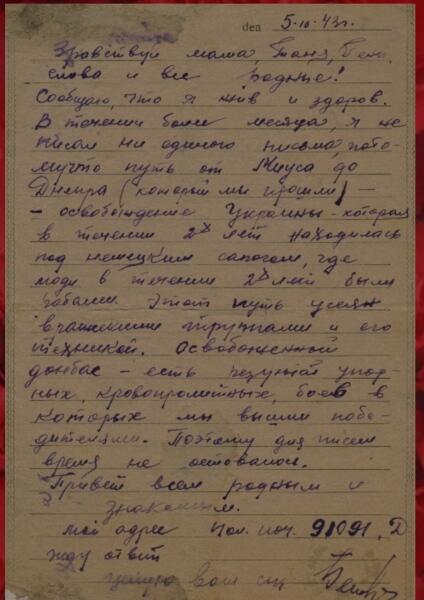 den 5-10-43г.
Здравствуй мама, Таня, Бени
слова и все родные!
Сообщаю, что я жив и здоров.
В течении более месяца, я не
писал ни одиного письма, пото-
мучто путь от Миуса до
Днепра (который мы прошли) —
- освобождение Украйны - которая
в течении 2х лет находилась
под немецким сапогом, где
люди в течении 2х лет были
рабами. Этот путь усеян
вражескими трупами и его
техникой. Освобожденный
донбас - есть результат упор-
ных, кровопролитных, боев в
которых мы вышли побе-
дителями. Поэтому для писем
время не оставалось.
Привет всем родным и
знакомым.
мой адрес Пол. поч. 91091. Д
жду ответ
целую ваш сын